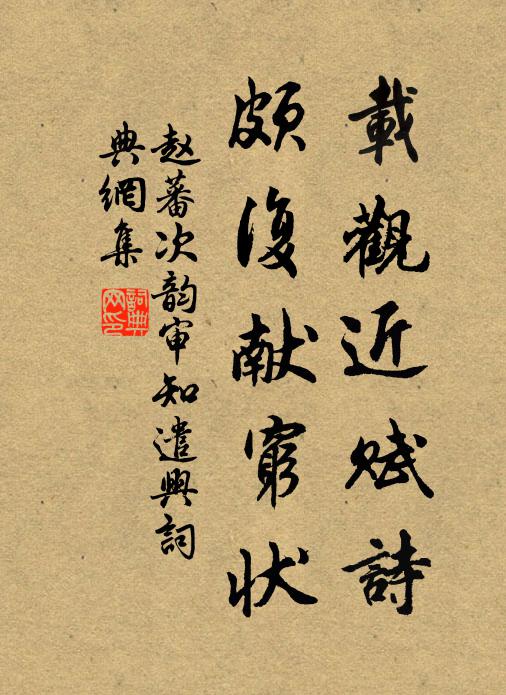 載觀近赋詩
頗復献窮状
赵蕃次韵审知遣興詞
典網集
詞典網印